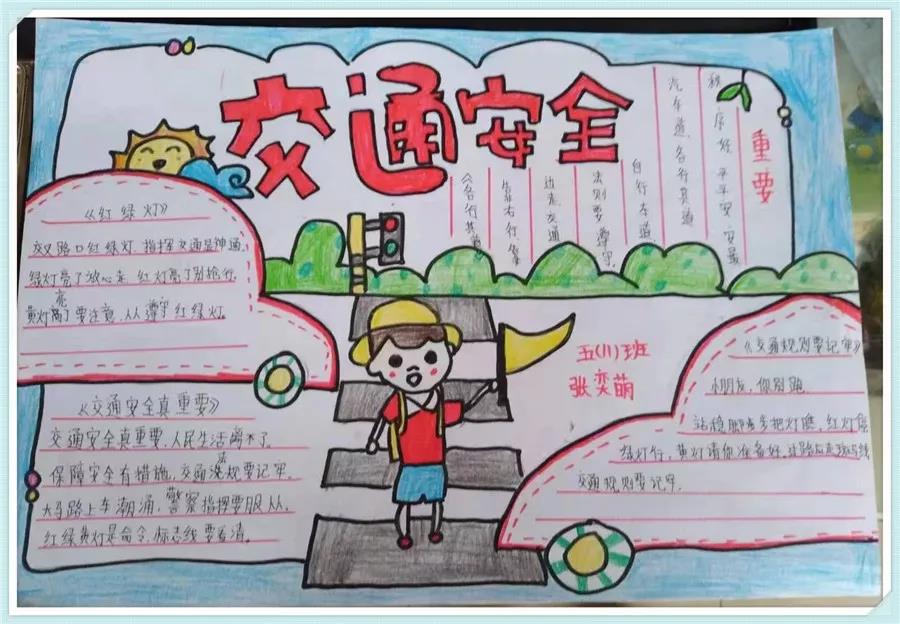 交通安全
重要
秩序好平平安安最
汽车道,各行其道
自行车道
法则要遵守
边走交通
《各行其道》
《红绿灯》
交叉路口红绿灯,指挥交通是神通,
绿灯亮了放心走,红灯亮了别抢行,
黄灯亮了要注意,人人遵守红绿灯。
《交通安全真重要》
交通安全真重要,人民生活离不了。
保障安全有措施,交通法规要记牢。
大马路上车潮涌,警察指挥要服从。
红绿黄灯是命令,标志线要看清。
五(1)班
张奕萌
《交通规则要记牢》
小朋友,你别跑,
站稳脚步把灯瞧,红灯停
绿灯行,黄灯请你准备好,过路应走斑马线
交通规则要记牢。